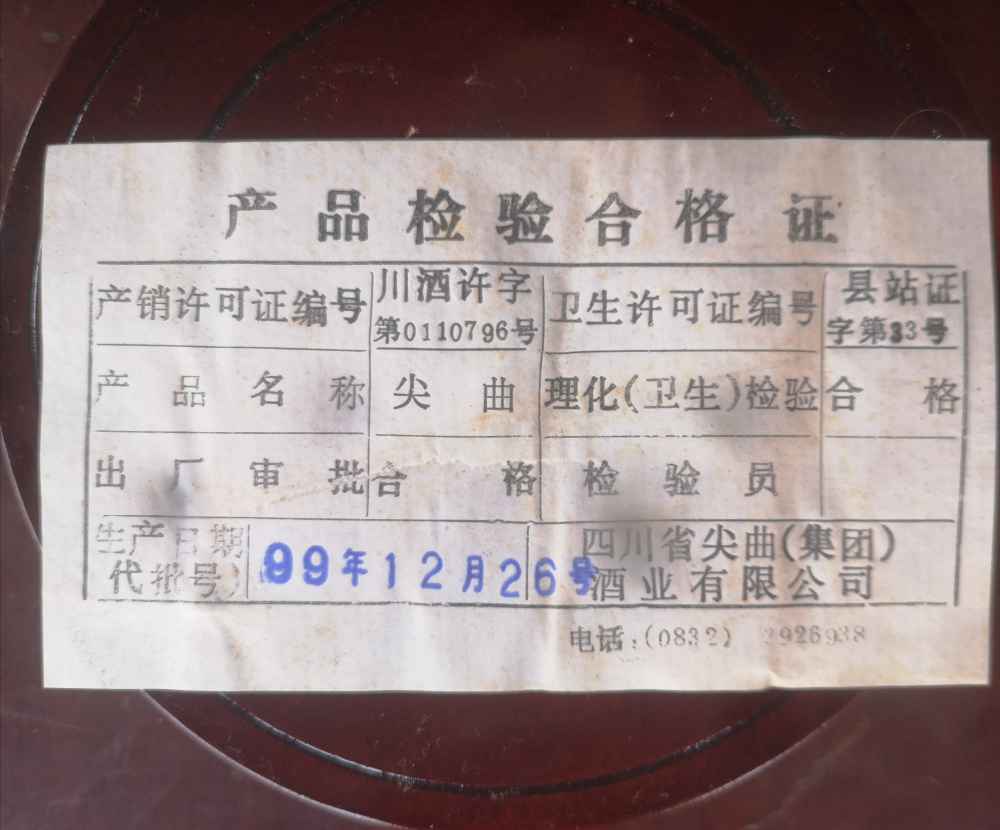 产品检验合格证
产销许可证编号 川酒许字第0110796号 卫生许可证编号 县站证字第33号
产品名称 尖曲 理化(卫生)检验 合格
出厂审批 合格 检验员
生产日期 代批号) 99年12月26号 四川省尖曲(集团)
酒业有限公司
电话:(0832) 2926938